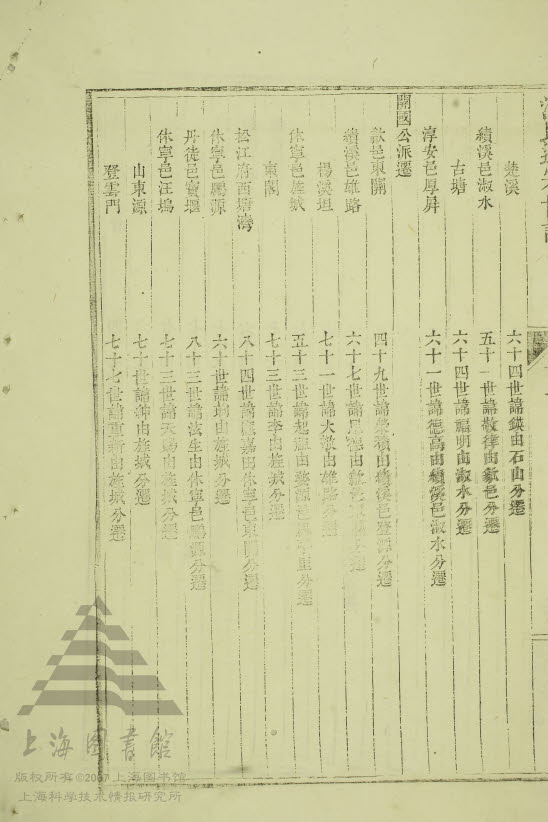 楚溪 六十四世諱鍈由石山分遷
績溪邑淑水 五十一世諱敬律由歙邑分遷
古塘 六十四世諱福明由淑水分遷
淳安邑厚屏 六十一世諱德高由績溪邑淑水分遷
開國公派遷
歙邑東關 四十九世諱 由績溪邑登源分遷
績溪邑雄路 六十七世諱 德由歙
楊溪坦 七十一世諱大 由雄路分遷
休寧邑旌城 五十三世諱起 由婺源邑 里分遷
東閣 七十三世諱李由旌城分遷
松江府西塘灣 八十四世諱 嘉由休寧邑東閣分遷
休寧邑鵬源 六十世諱 由旌城分遷
丹徒邑寶堰 八十三世諱法生由休寧邑鵬源分遷
休寧邑汪塢 七十三世諱天 由旌城分遷
山東源 七十世諱 由旌城分遷
登雲門 七十七世諱 新由旌城分遷
上海图書館
版权所有 ©2007 上海图书馆
上海科学技术情报研究所